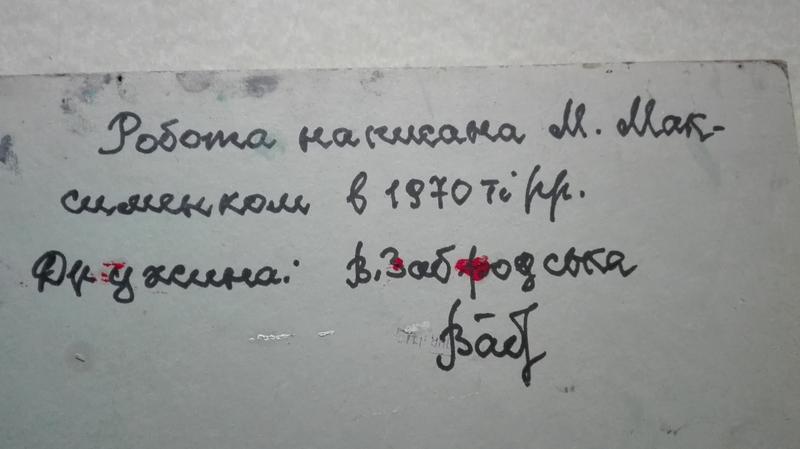 Робота написана М. Мак-
сименком в 1970 ті рр.
Дружина: В. Забродська